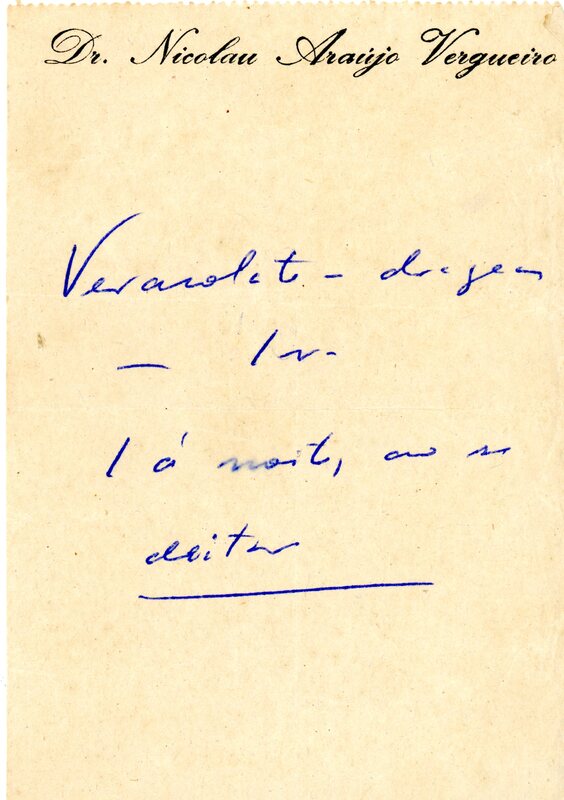 Dr. Nicolau Araújo Vergueiro
Veracolate - drageas
— 1 v.
1 á noite, ao se
deitar